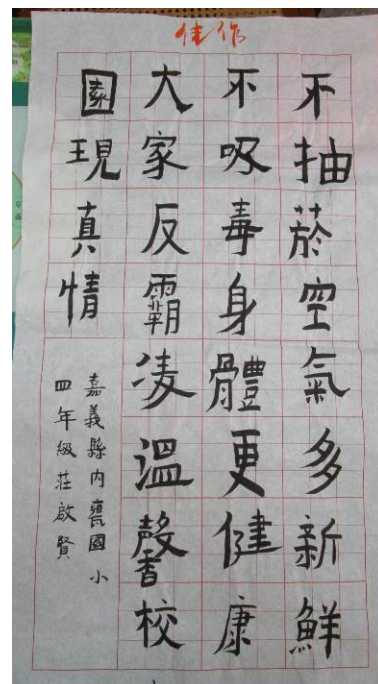 佳作
不抽菸空氣多新鮮
不吸毒身體更健康
大家反霸凌溫馨校
園現真情
嘉義縣內甕國小
四年級莊啟賢